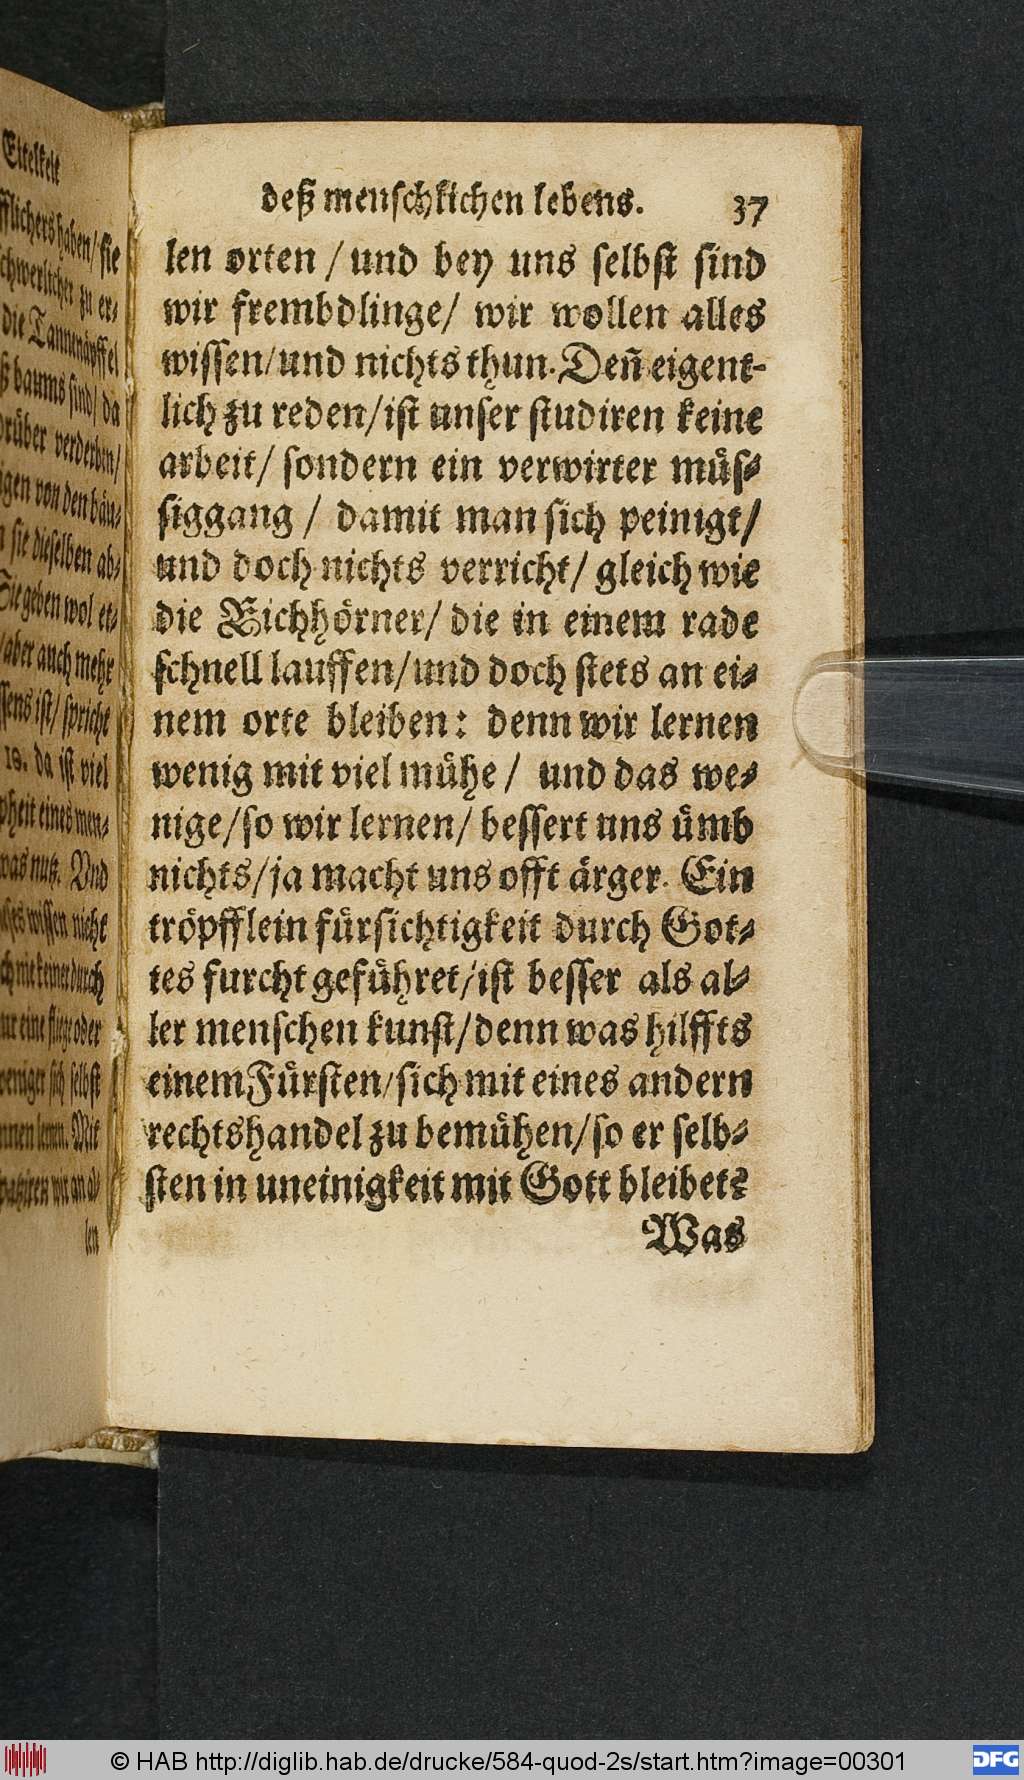 Eitelkeit
fflichers haben/ sie
chwerlicher zu er-
die Tannnäpffel
ß baums sind/ da
drüber verderben/
igen von den bäu-
n sie dieselben ab-
Sie geben wol et-
/aber auch mehr
ssens ist/ spricht
18. da ist viel
pheit eines men-
was nutz. Und
wissen nicht
durch
nur eine fliege oder
weniger sich selbst
Mit
spatziren wir an al-
len
deß menschkichen lebens. 37
len orten / und bey uns selbst sind
wir frembdlinge/ wir wollen alles
wissen/und nichts thun. Deñ eigent-
lich zu reden/ist unser studiren keine
arbeit/ sondern ein verwirter müs-
siggang / damit man sich peinigt/
und doch nichts verricht/ gleich wie
die Eichhörner/ die in einem rade
schnell lauffen/und doch stets an ei-
nem orte bleiben: denn wir lernen
wenig mit viel mühe / und das we-
nige/so wir lernen/ bessert uns ümb
nichts/ja macht uns offt ärger. Ein
tröpfflein fürsichtigkeit durch Got-
tes furcht geführet/ist besser als al-
ler menschen kunst/denn was hilffts
einem Fürsten/sich mit eines andern
rechtshandel zu bemühen/so er selb-
sten in uneinigkeit mit Gott bleibet?
Was
© HAB http://diglib.hab.de/drucke/584-quod-2s/start.htm?image=00301
DFG